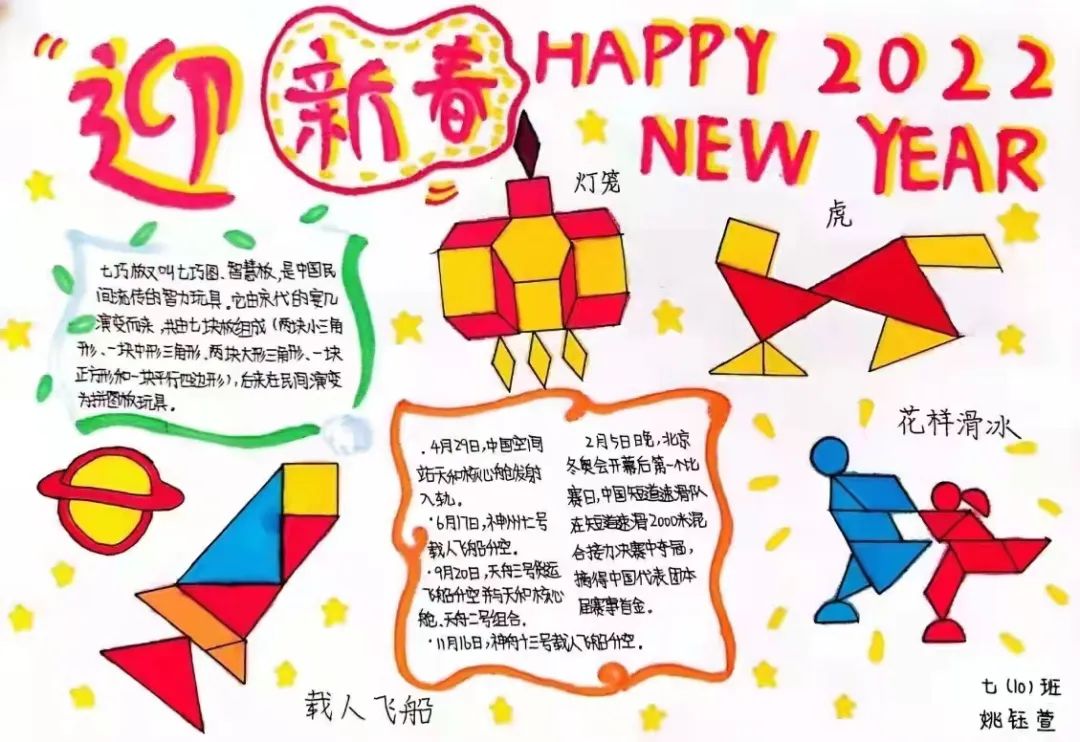 “迎新春” HAPPY 2022
NEW YEAR
灯笼
虎
七巧板又叫七巧图、智慧板,是中国民
间流传的智力玩具。它由宋代的宴几
演变而来,共由七块板组成(两块小三角
形、一块中形三角形、两块大形三角形、一块
正方形和一块平行四边形),后来在民间演变
为拼图板玩具。
·4月29日,中国空间
站天和核心舱发射
入轨。
·6月17日,神州十二号
载人飞船升空。
·9月20日,天舟三号货运
飞船升空并与天和核心
舱、天舟二号组合。
·11月16日,神舟十三号载人飞船升空。
2月5日晚,北京
冬奥会开幕后第一个比
赛日,中国短道速滑队
在短道速滑2000米混
合接力决赛中夺冠,
摘得中国代表团本
届赛事首金。
花样滑冰
载人飞船
七(10)班
姚钰萱